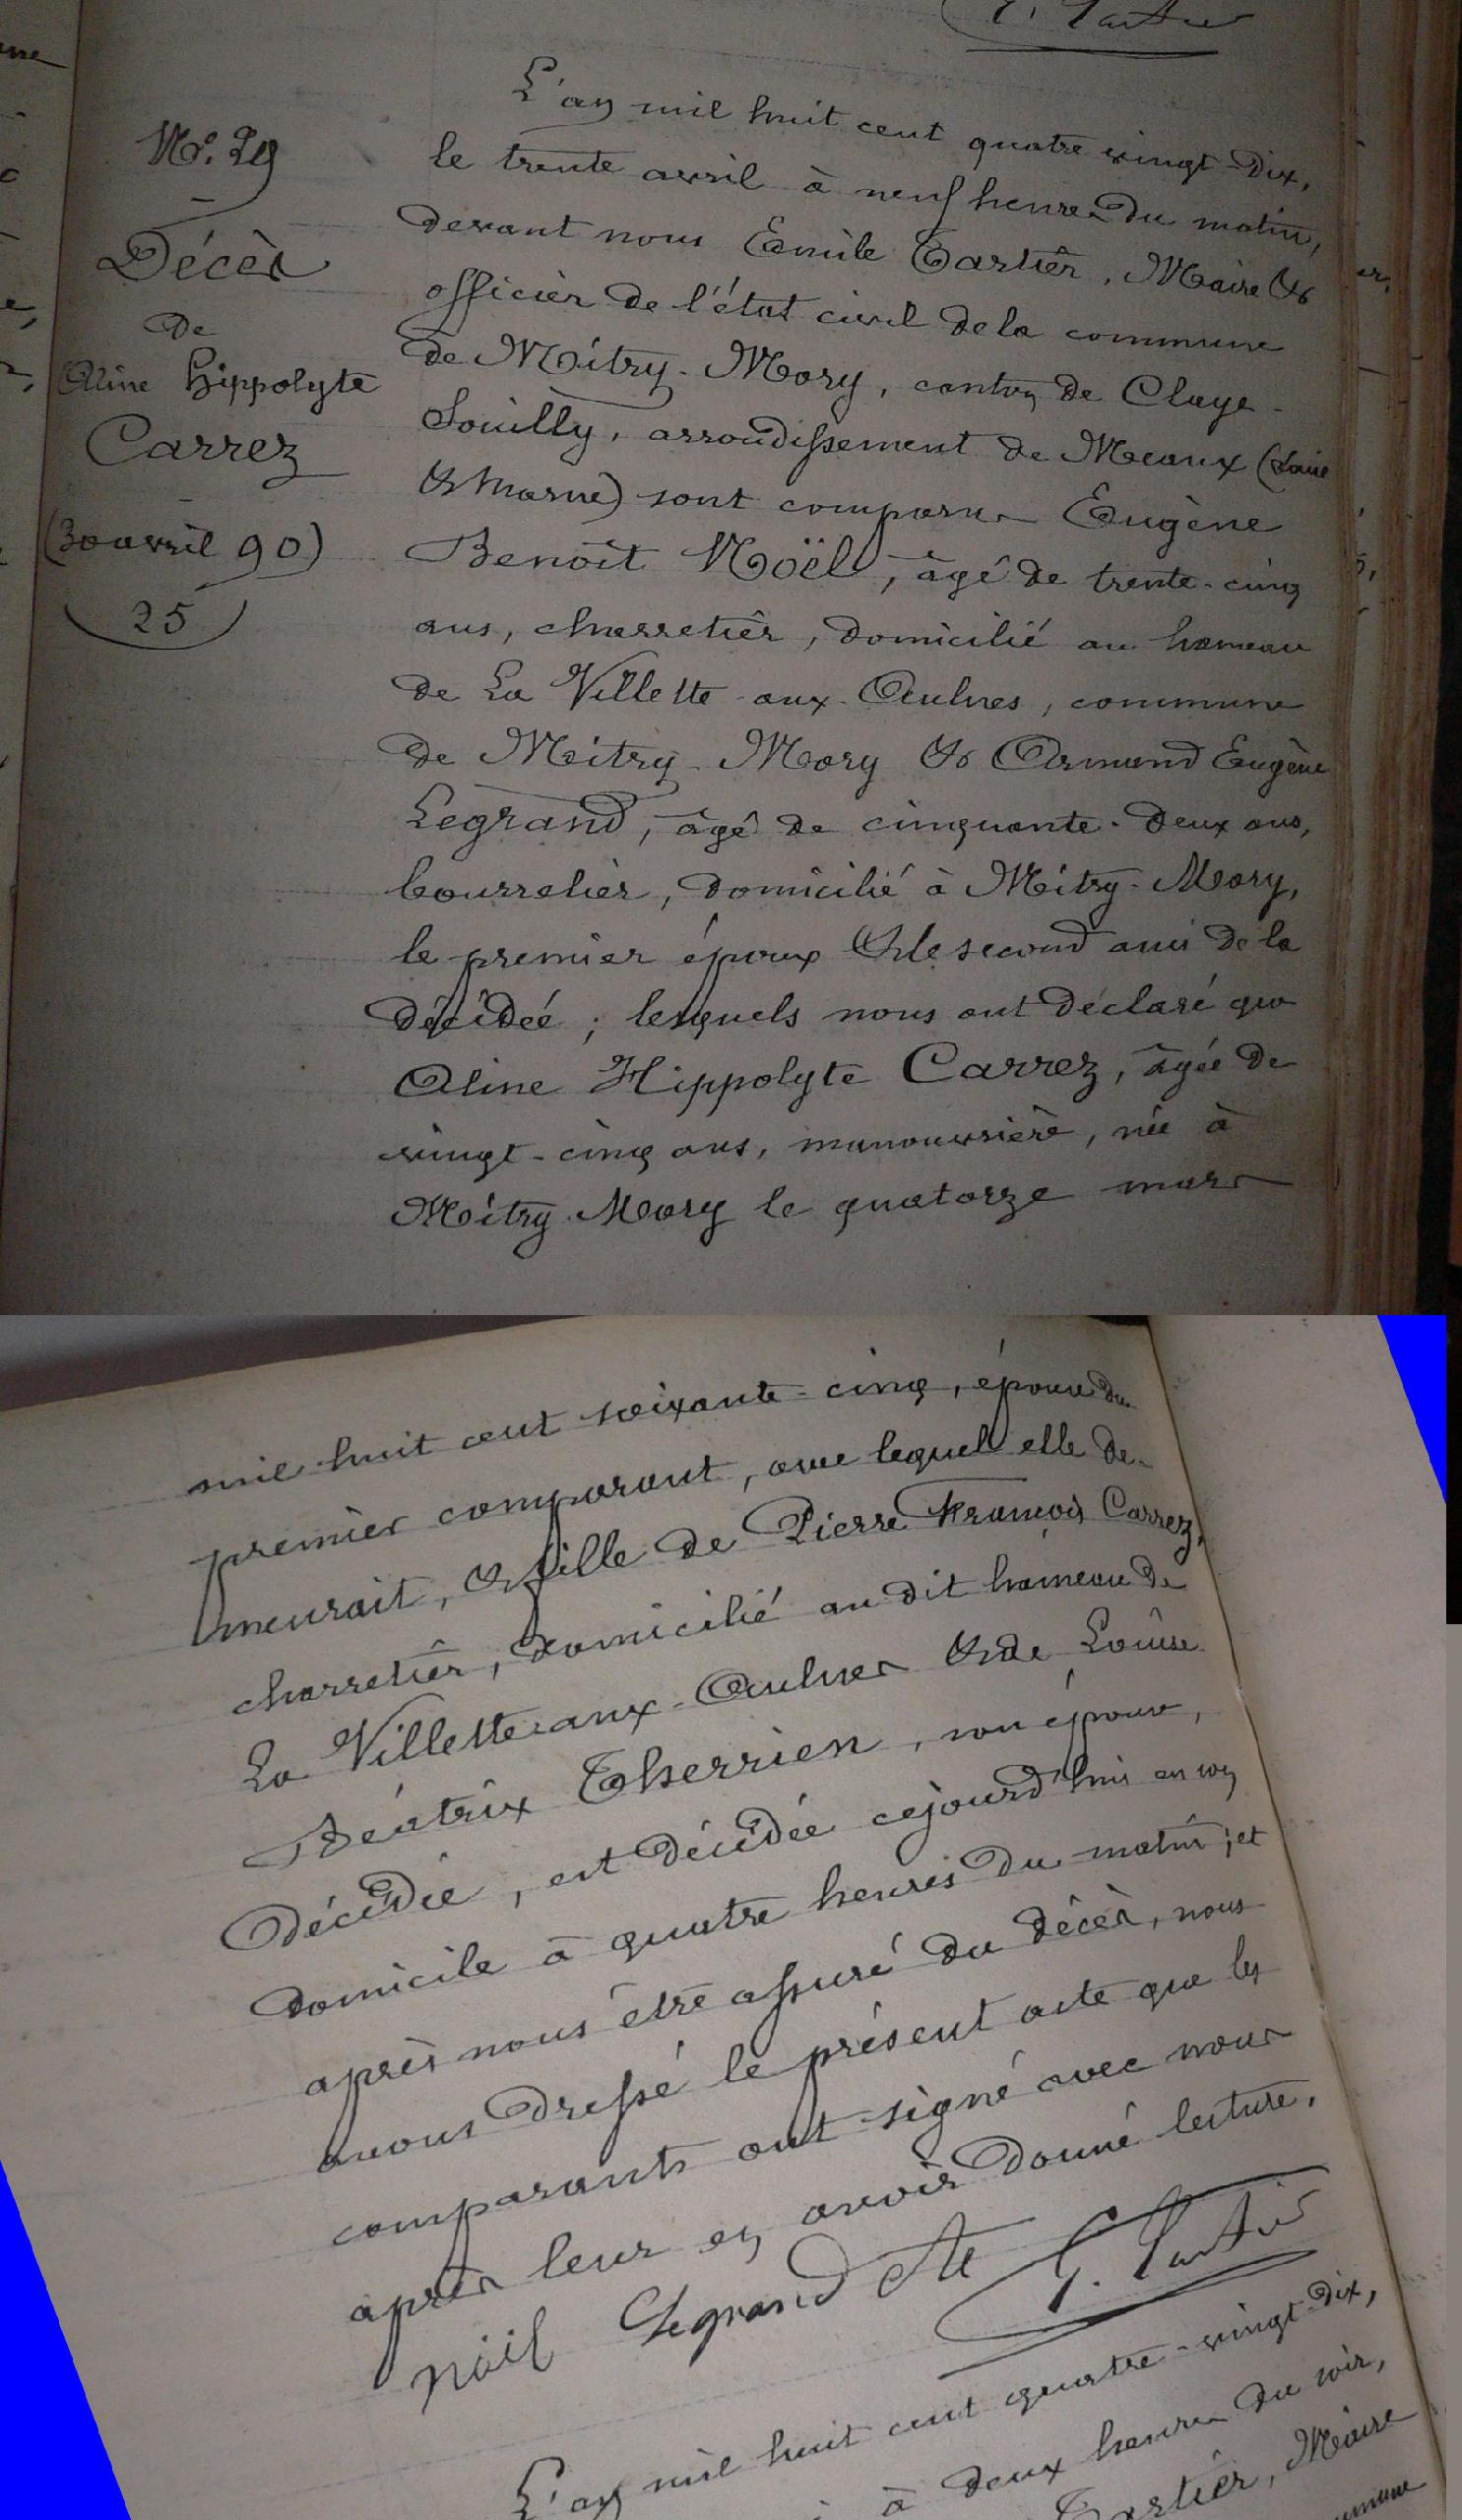 E. Tartier
Nº. 29
Décès
de
Aline Hippolyte
Carrez
(30 avril 90)
25
L'an mil huit cent quatre vingt-dix,
le trente avril à neuf heures du matin,
devant nous Emile Tartier, Maire &
officier de l'état civil de la commune
de Mitry-Mory, canton de Claye-
Souilly, arrondissement de Meaux (Seine
& Marne) sont comparus Eugène
Benoît Noël, âgé de trente-cinq
ans, charretier, domicilié au hameau
de La Villette-aux-Aulnes, commune
de Mitry-Mory & Armand Eugène
Legrand, âgé de cinquante-deux ans,
bourrelier, domicilié à Mitry-Mory,
le premier époux & le second ami de la
décédée ; lesquels nous ont déclaré que
Aline Hippolyte Carrez, âgée de
vingt-cinq ans, manouvrière, née à
Mitry-Mory le quatorze mars
mil huit cent soixante-cinq, épouse du
premier comparant, avec lequel elle de-
meurait, & fille de Pierre François Carrez,
charretier, domicilié au dit hameau de
La Villette-aux-Aulnes & de Louise
Béatrix Therrien, son épouse,
décédée, est décédée cejourd'hui en son
domicile à quatre heures du matin ; et
après nous être assuré du décès, nous
avons dressé le présent acte que les
comparants ont signé avec nous
après leur en avoir donné lecture.
Noël Legrand E. Tartier
L'an mil huit cent quatre-vingt-dix,
à deux heures du soir,
Tartier, Maire